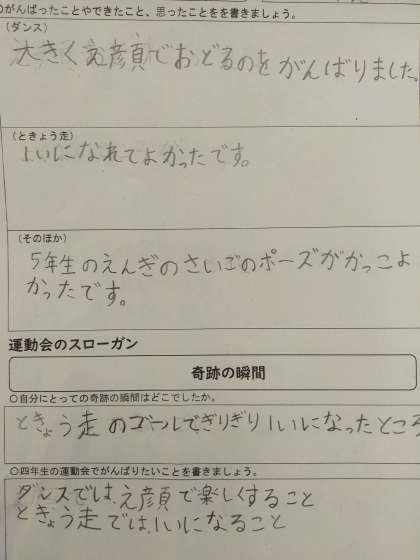 のがんばったことやできたこと、思ったことをを書きましょう。
(ダンス)
大きくえ顔でおどるのをがんばりました。
(ときょう走)
1いになれてよかったです。
(そのほか)
5年生のえんぎのさいごのポーズがかっこよ
かったです。
運動会のスローガン
奇跡の瞬間
○自分にとっての奇跡の瞬間はどこでしたか。
ときょう走のゴールでぎりぎり1いになったところ
○四年生の運動会でがんばりたいことを書きましょう。
ダンスでは、え顔で楽しくすること
ときょう走では、1いになること